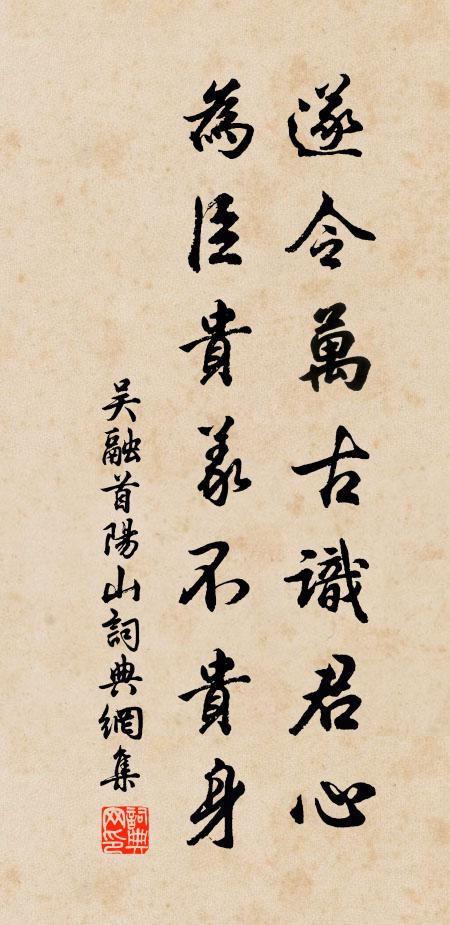 遂令萬古識君心
為臣貴義不貴身
吴融首陽山詞典網集
詞典
网印